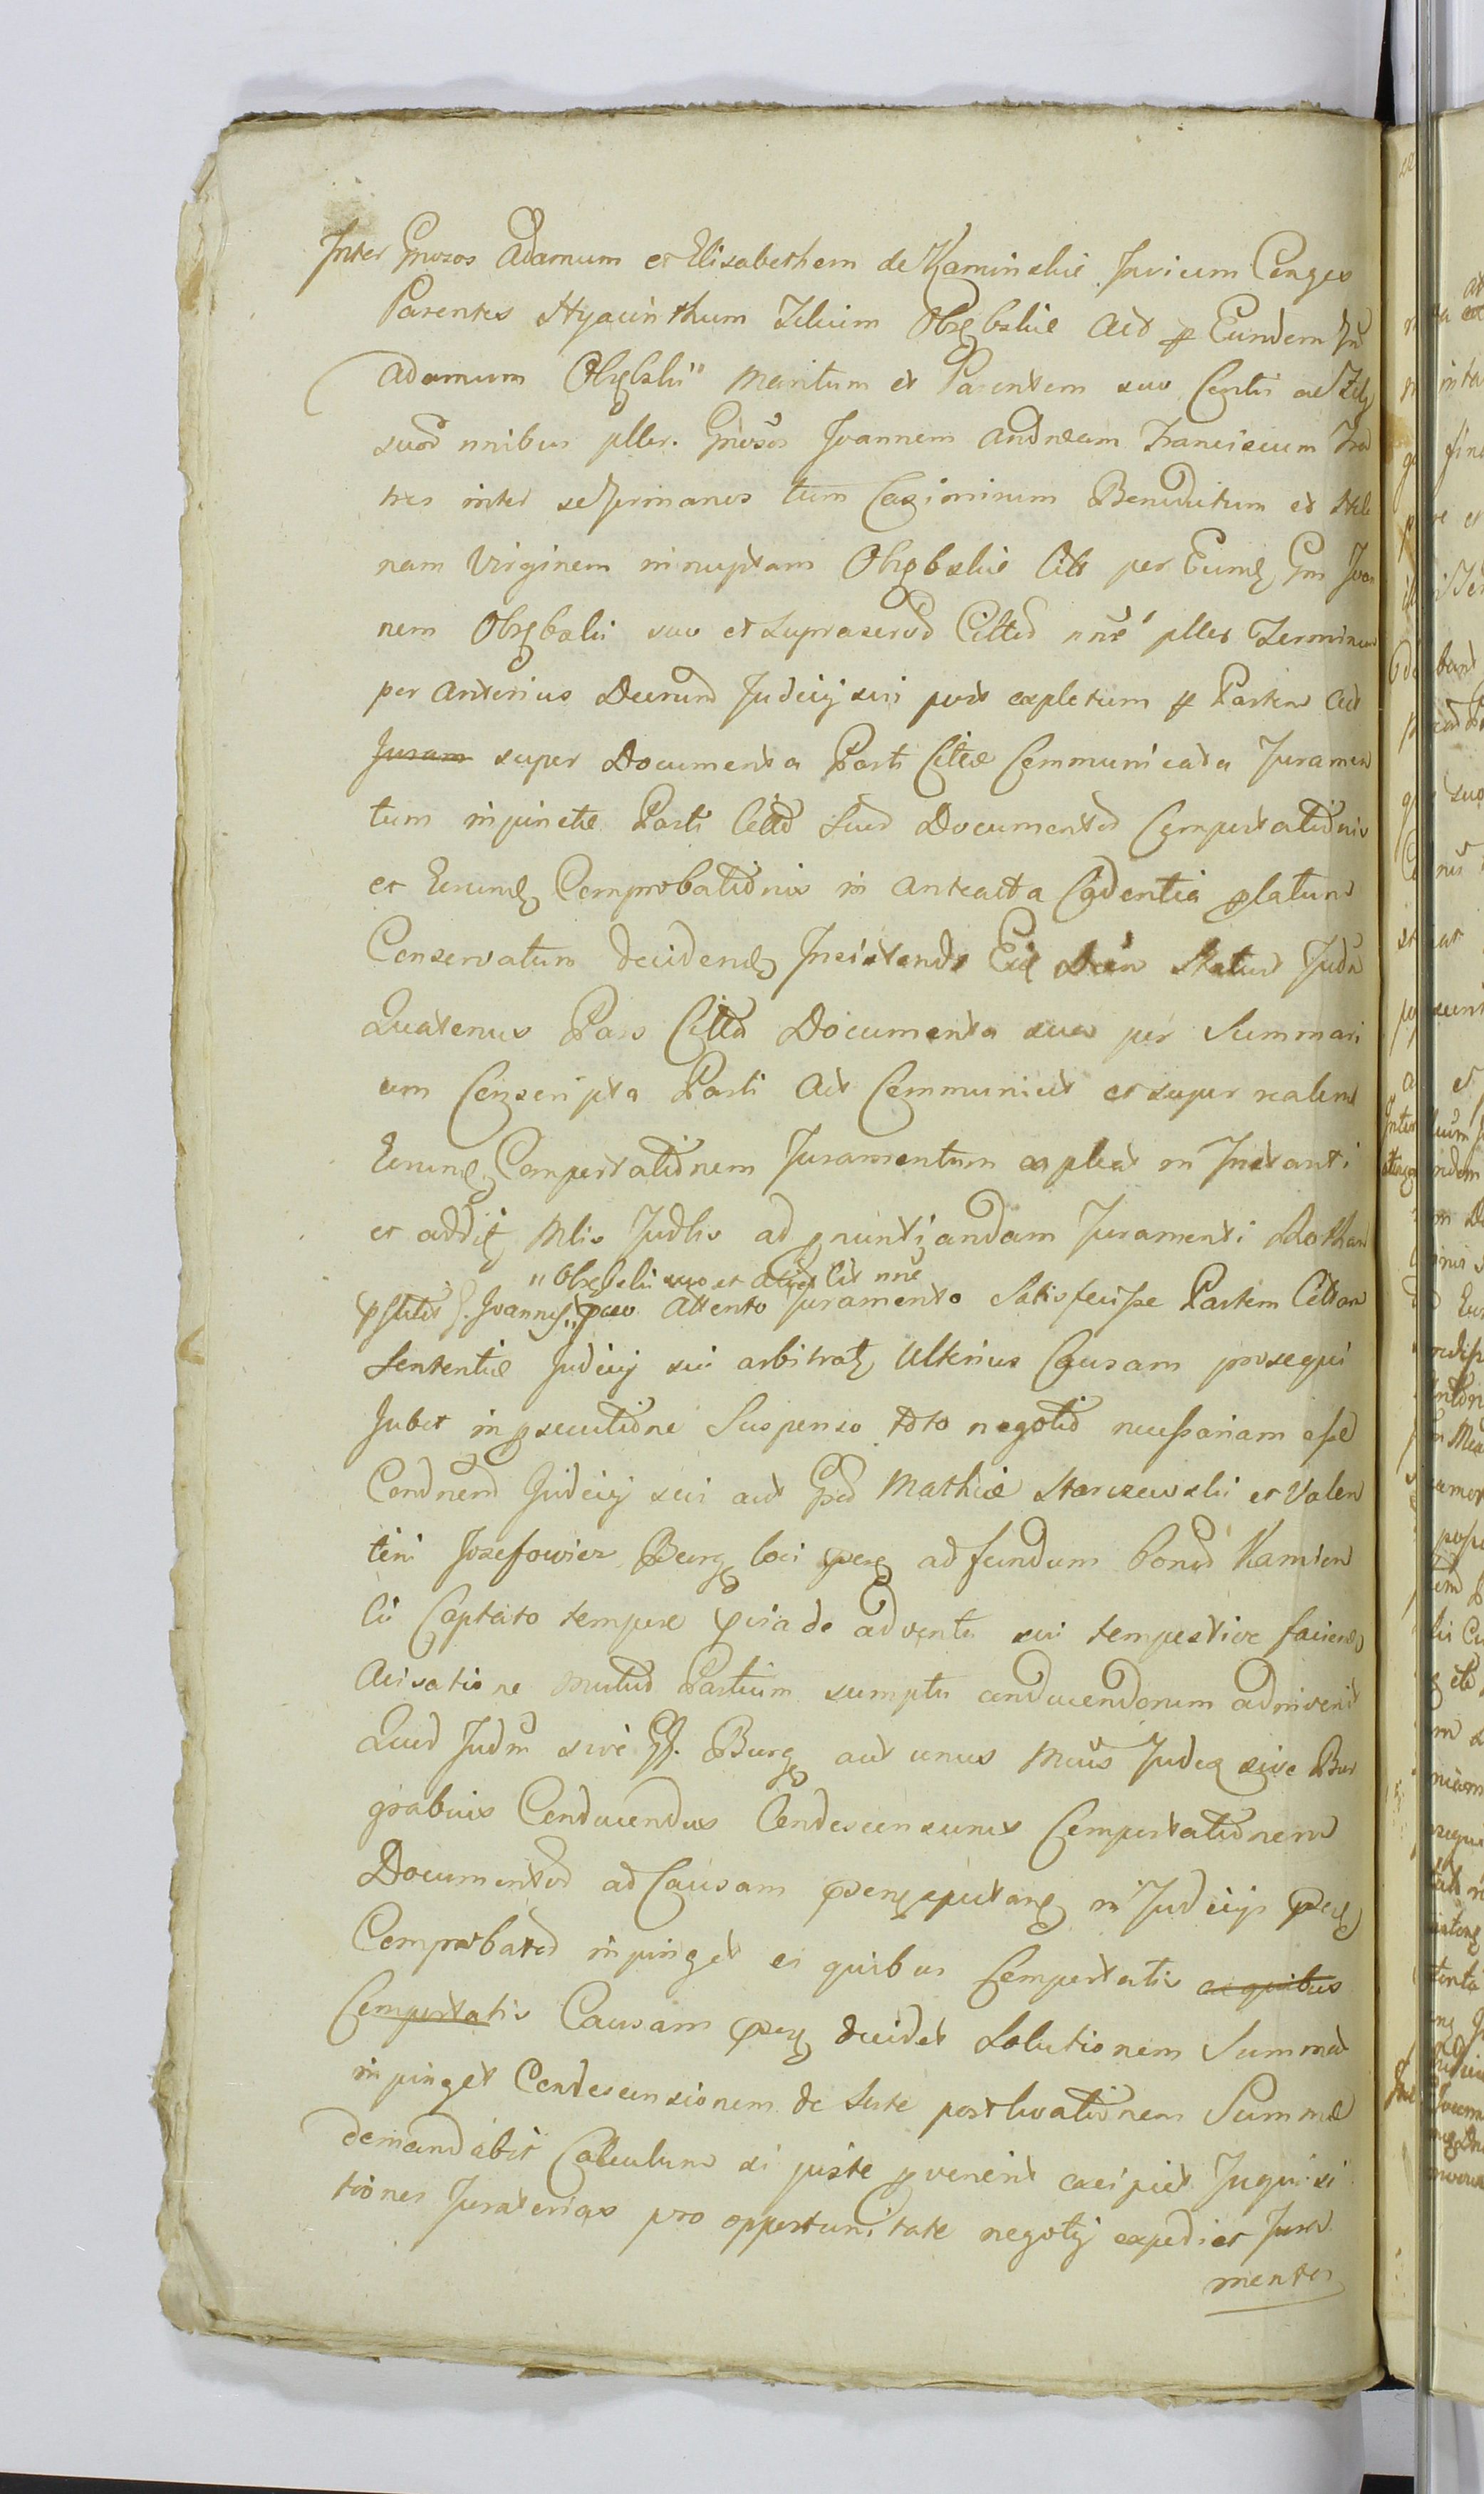 Inter Gnosos Adamum et Elisabetham de Kaminskie Invicem Conges
Parentes Hyacinthum Filium Obrębskie Act p Eundem Gn
Adamum Obrębski maritum et Parentem suo Contis ac Filij
suor nnibus pller. Gnosos Joannem Andream Franciscum Fra
tres inter se Germanos tum Casimirum Benedictum et Hele
nam Virginem innuptam Obrębskie Citt per Eund Gn Joan
nem Obrębski suo et suprascrod Cittod nne plles Terminus
per anterius Decretum Judicij sui post expletum p Partem Act
Juram super Documenta Parti Cittae Communicata Juramen
tum injunctae Parti Citta suor Documentor Comportationis
et Eorund Comprobationis in anteacta Cadentia platum
Conservatum decidend Insistendo Ex Decr Status Judm
Quatenus Pars Citta Documenta sua per Summari
um Conscripta Parti Act Communicet et super realem
Eorund Comportationem Juramentum expleat in Instanti
et addit Mlis Judlis ad pnuntiandam Juramenti Rotham
" Obrębski suo et alior Cit nne
pstitis G. Joannis pvo Attento Juramento Satisfecisse Partem Cittam
Sententiae Judicij sui arbitrat Ulterius Causam prosequi
Jubet in psecutione Suspenso toto negotio necessariam esse
Condnem Judicij sui aut Gsor Mathiae Staniszewski et Valen
tini Jozefowicz Burg loci psen ad fundum bonor Kamien
ci Captato tempore pvia de adventu sui tempestive faciend
avisatione mutuo Partium sumptu conducendorum adinvenit
Quod Judm sive GG. Burg aut unus Meus Judex sive Bur
grabius Conducendus Condescensurus Comportationem
Documentor ad Causam psen spectan in Judicijs psen
Comprobator injunget ex quibus Comportatis ex quibus
Comportatis Causam psen decidet Solutionem Summae
injunget Condescensionem de Sorte post levationem Summae
demandabit Calculum si juste pvenerit excipiet Inquisi
tiones Juratorias pro opportunitate negotij expediet Jura
menta